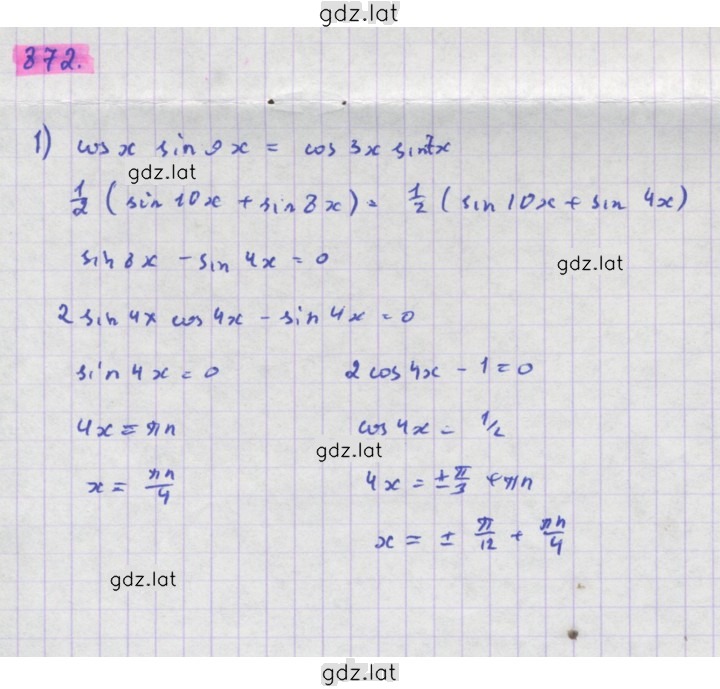 gdz.lat
872.
1) cos x sin 9x = cos 3x sin 7x
gdz.lat
1/2 (sin 10x + sin 8x) = 1/2 (sin 10x + sin 4x)
sin 8x - sin 4x = 0
gdz.lat
2 sin 4x cos 4x - sin 4x = 0
sin 4x = 0 2 cos 4x - 1 = 0
4x = πn cos 4x = 1/2
gdz.lat
x = πn/4 4x = ± π/3 + πn
x = ± π/12 + πn/4
gdz.lat
gdz.lat